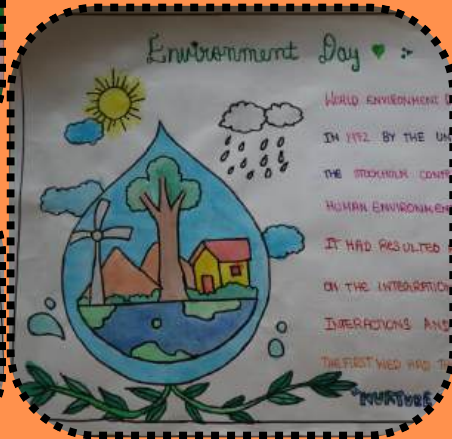 Environment Day
WORLD ENVIRONMENT
IN 1972 BY THE UN
THE STOCKHOLM CONF
HUMAN ENVIRONMEN
IT HAD RESULTED
ON THE
INTERACTIONS AND
THE FIRST WED HAD TH
"NURTURE